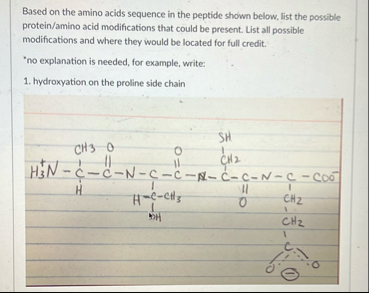 Based on the amino acids sequence in the peptide shown below, list the possible
protein/amino acid modifications that could be present. List all possible
modifications and where they would be located for full credit.
*no explanation is needed, for example, write:
1. hydroxyation on the proline side chain
SH
CH3 O O CH2
H3N+ - C - C - N - C - C - N - C - C - N - C - COO-
H H-C-CH3 O CH2
OH CH2
C
O O
⊖